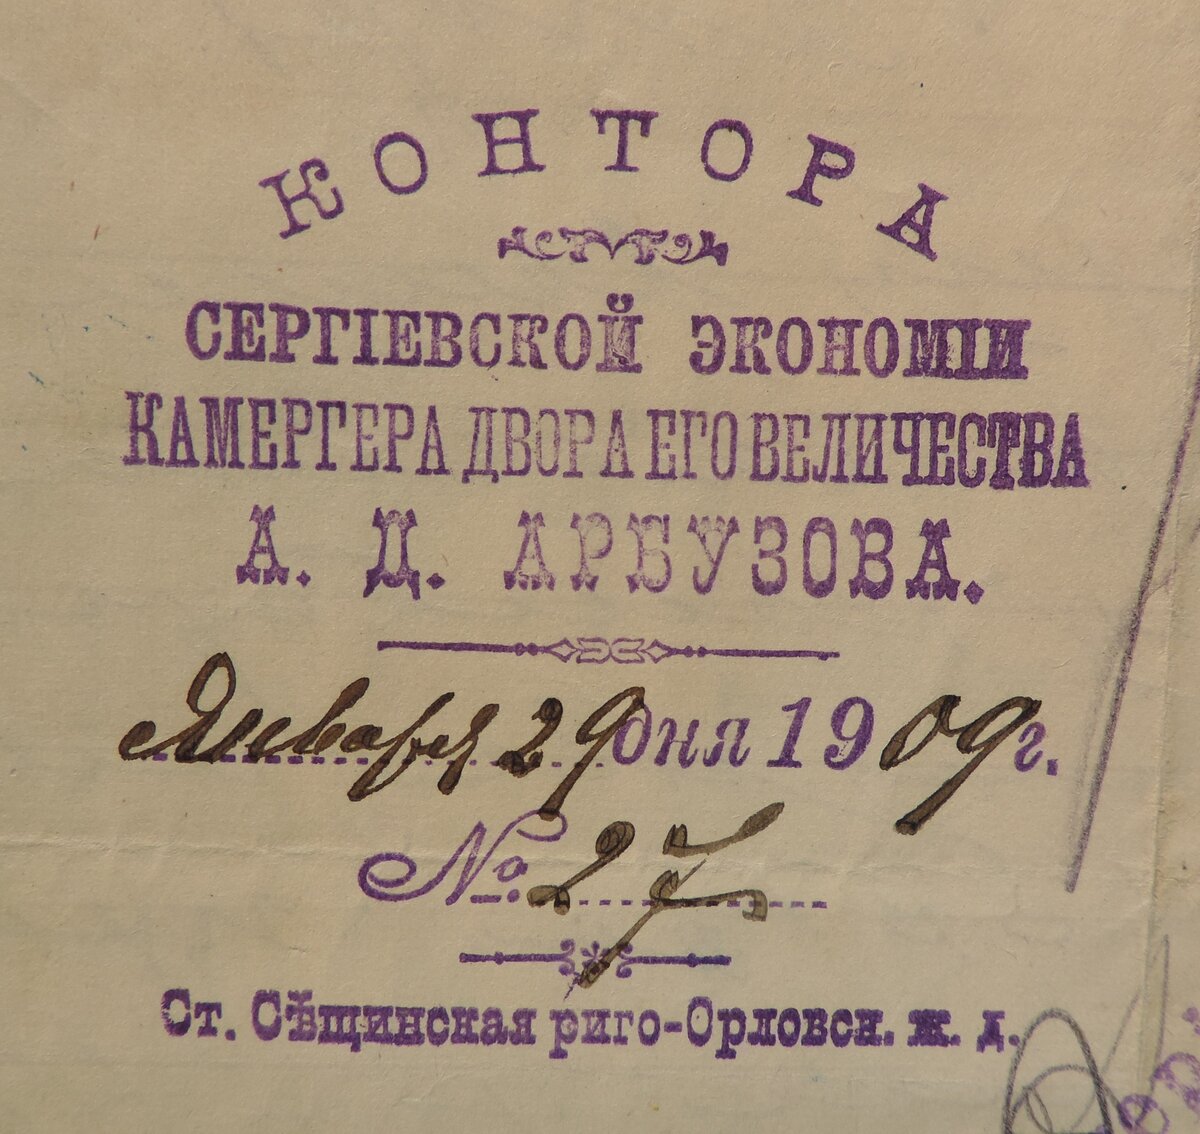 КОНТОРА
СЕРГІЕВСКОЙ ЭКОНОМІИ
КАМЕРГЕРА ДВОРА ЕГО ВЕЛИЧЕСТВА
А. Д. АРБУЗОВА.
Января 29 дня 1909 г.
№ 27
Ст. Сѣщинская риго-Орловск. ж. д.